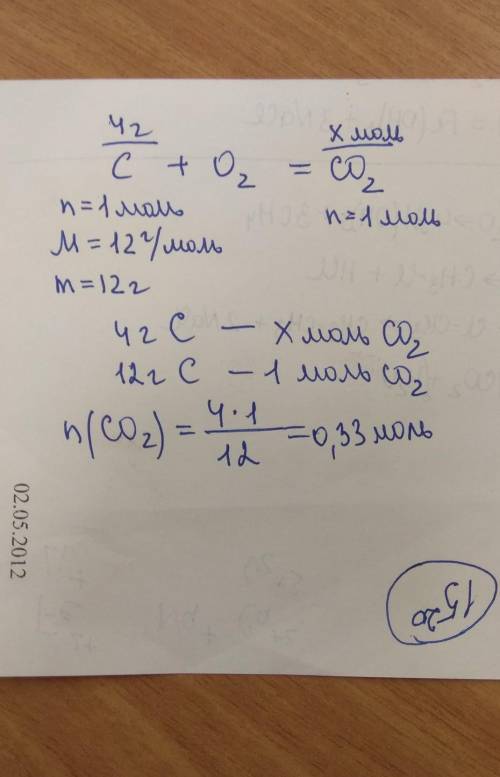 4г x моль
C + O₂ = CO₂
n=1 моль n=1 моль
M=12 г/моль
m=12г
4г C — x моль CO₂
12г C — 1 моль CO₂
n(CO₂) = 4·1/12 = 0,33 моль
02.05.2012